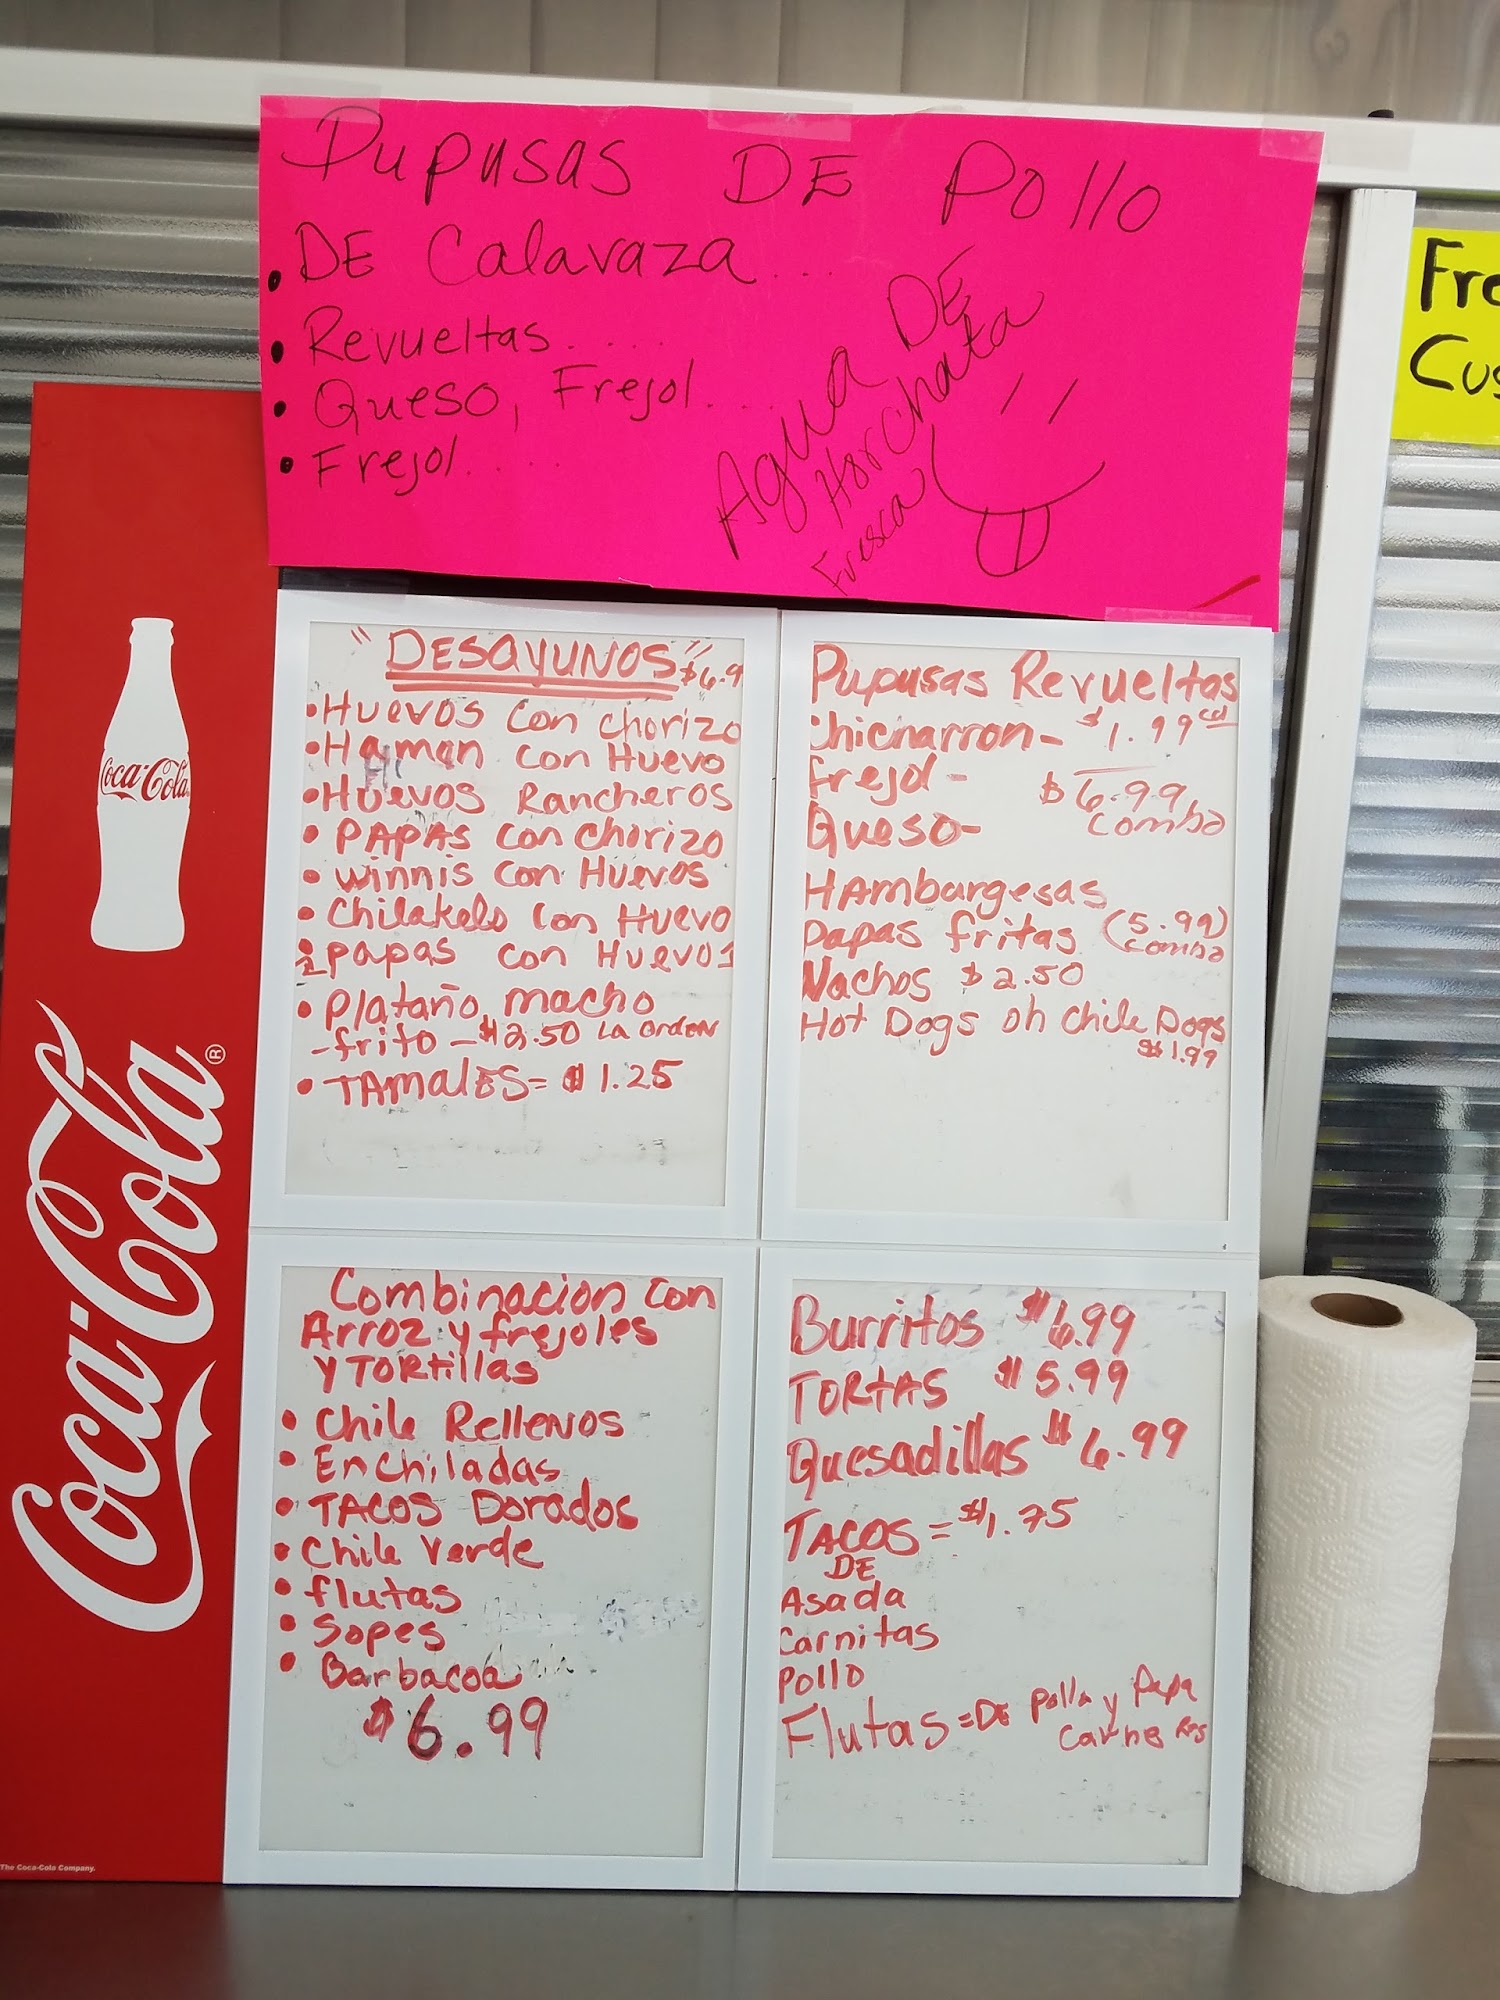 Pupusas DE Pollo
• DE Calavaza...
• Revueltas.....
• Queso, Frejol....
• Frejol.....
Agua DE
Horchata
Fresca
Fre
Cus
Coca-Cola
Coca-Cola®
The Coca-Cola Company.
"DESAYUNOS" $6.9
• Huevos con chorizo
• Haman con Huevo
• Huevos Rancheros
• PAPAS con chorizo
• winnis con Huevos
• Chilakelo con Huevo
papas con Huevos
• Plataño macho
-frito - $2.50 La orden
• TAmalES = $1.25
Pupusas Revueltas
chicharron- $1.99 cd
frejol- $6.99
Queso- combo
HAmburgesas
papas fritas (5.99)
combo
Nachos $2.50
Hot Dogs oh chile Dogs
$1.99
Combinacion con
Arroz y frejoles
y TORtillas
• Chile Rellenos
• Enchiladas
• TACOS Dorados
• Chile Verde
• flutas
• Sopes
• Barbacoa
$6.99
Burritos $6.99
TORtAS $5.99
Quesadillas $6.99
TACOS = $1.75
DE
Asada
Carnitas
Pollo
Flutas = DE pollo y Papa
carne Res